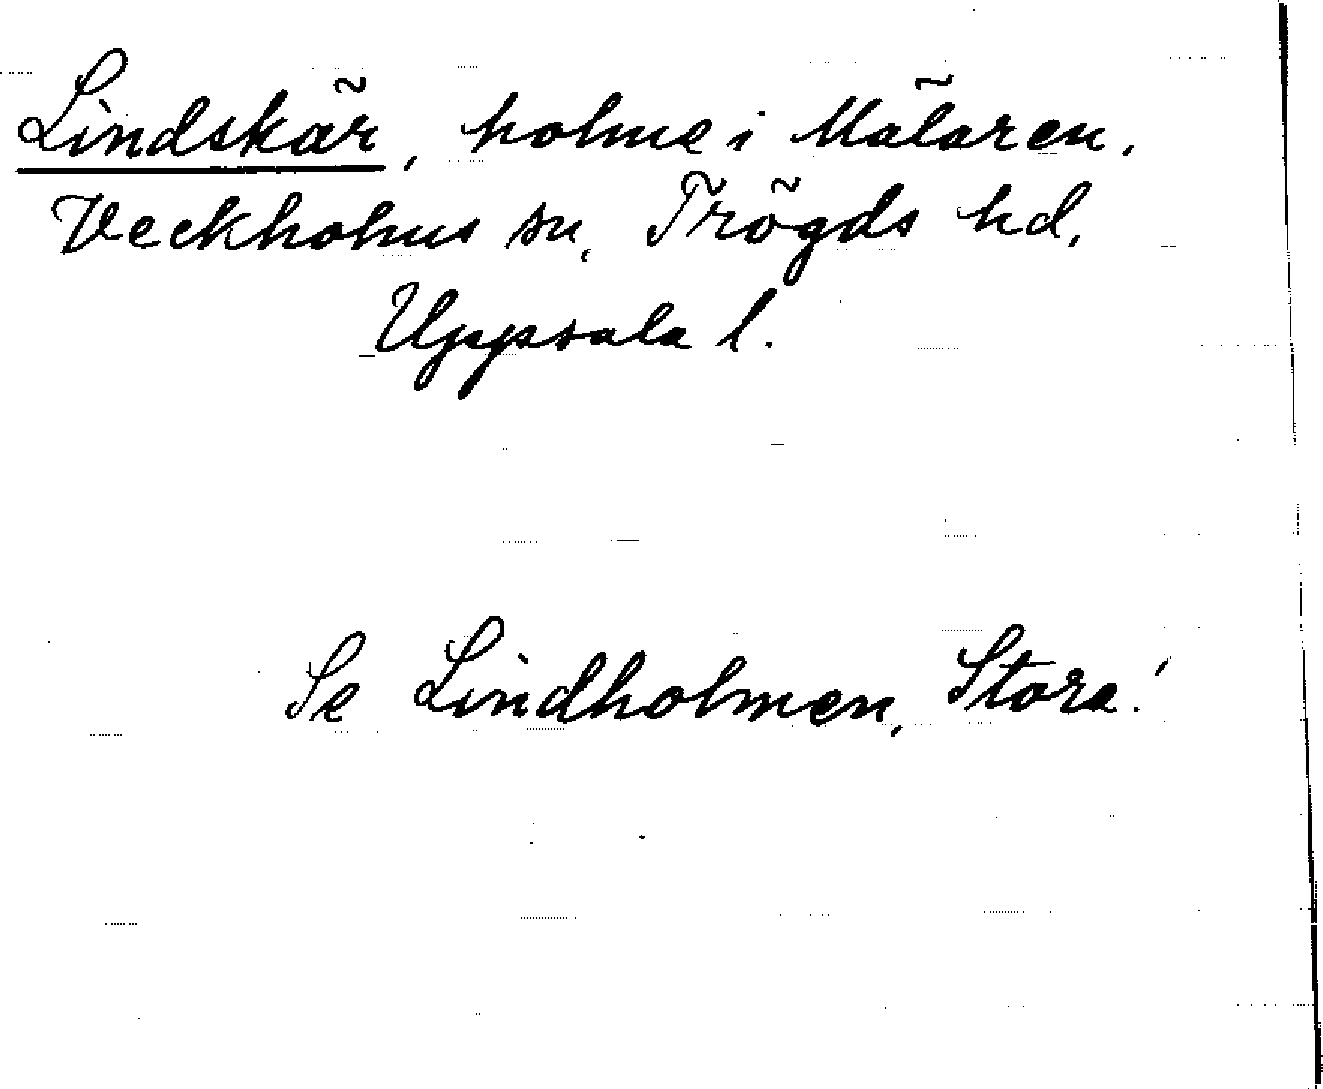 Lindskär, holme i Mälaren,
Veckholms sn, Trögds hd,
Uppsala l.
Se Lindholmen, Stora!